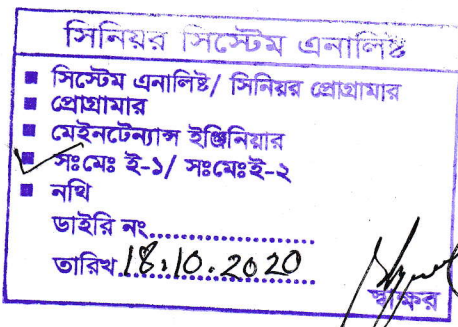 সিনিয়র সিস্টেম এনালিষ্ট
■ সিস্টেম এনালিষ্ট/ সিনিয়র প্রোগ্রামার
■ প্রোগ্রামার
■ মেইনটেন্যান্স ইঞ্জিনিয়ার
■ সঃমেঃ ই-১/ সঃমেঃই-২
■ নথি
ডাইরি নং..................
তারিখ 18.10.2020
স্বাক্ষর